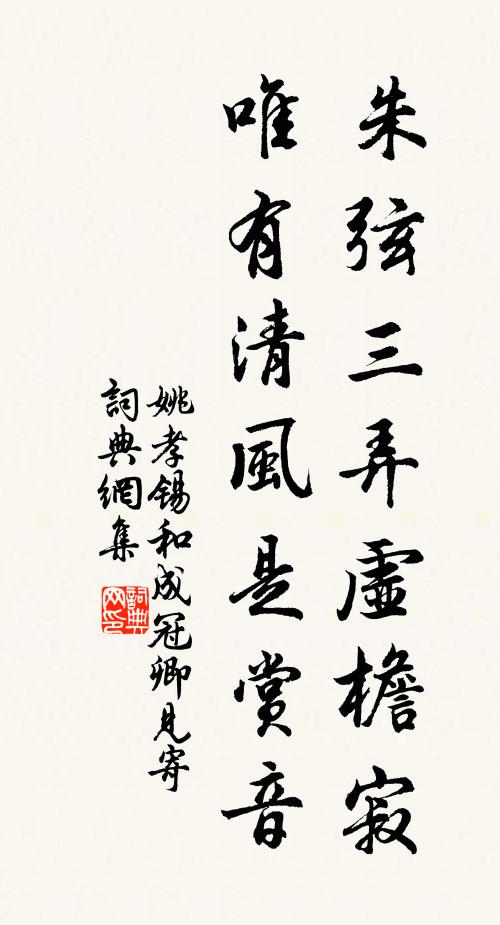 朱弦三弄虛檐寂
唯有清風是賞音
姚孝錫和成冠卿見寄
詞典網集
詞典网印